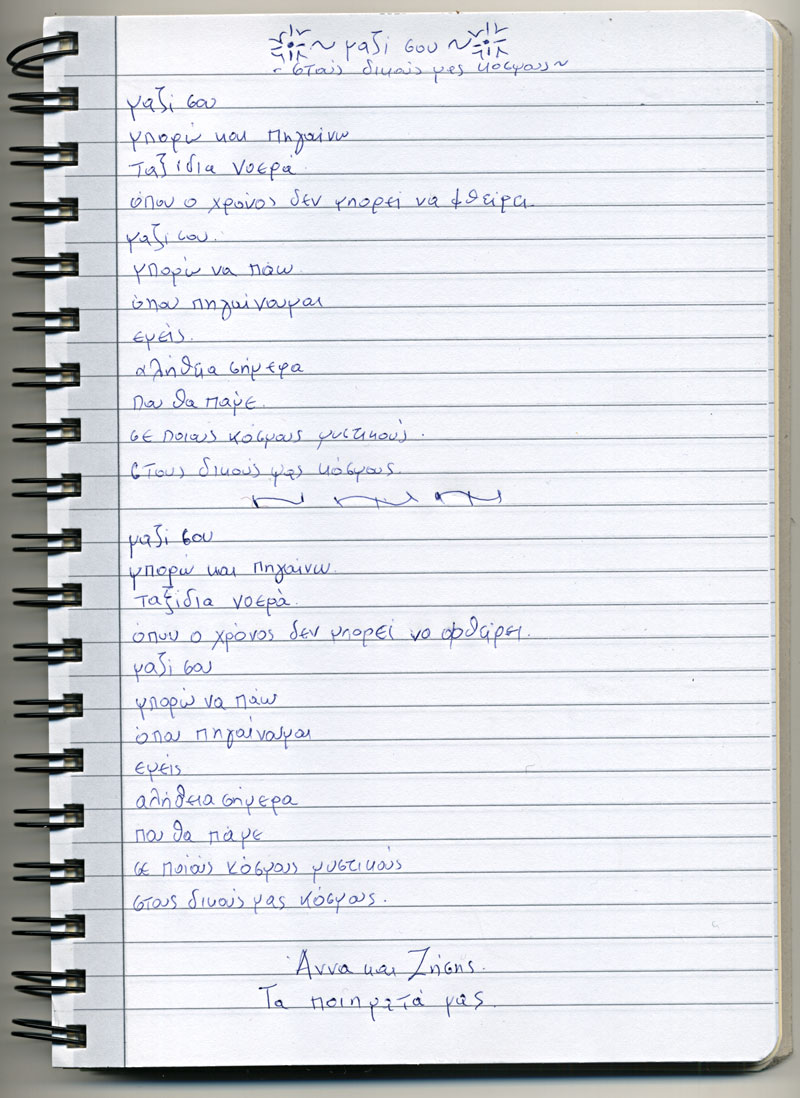 ~ μαζί σου ~
- στους δικούς μας κόσμους ~
μαζί σου
μπορώ και πηγαίνω
ταξίδια νοερά
όπου ο χρόνος δεν μπορεί να φθείρει.
μαζί σου.
μπορώ να πάω
όπου πηγαίνουμαι
εμείς.
αλήθεια σήμερα
που θα πάμε.
σε ποιούς κόσμους μυστικούς.
Στους δικούς μας κόσμους.
μαζί σου
μπορώ και πηγαίνω.
ταξίδια νοερά.
όπου ο χρόνος δεν μπορεί να φθείρει.
μαζί σου
μπορώ να πάω
όπου πηγαίνουμαι
εμείς
αλήθεια σήμερα
που θα πάμε
σε ποιούς κόσμους μυστικούς
στους δικούς μας κόσμους.
Άννα και Ζήσης.
Τα ποιηματά μας.